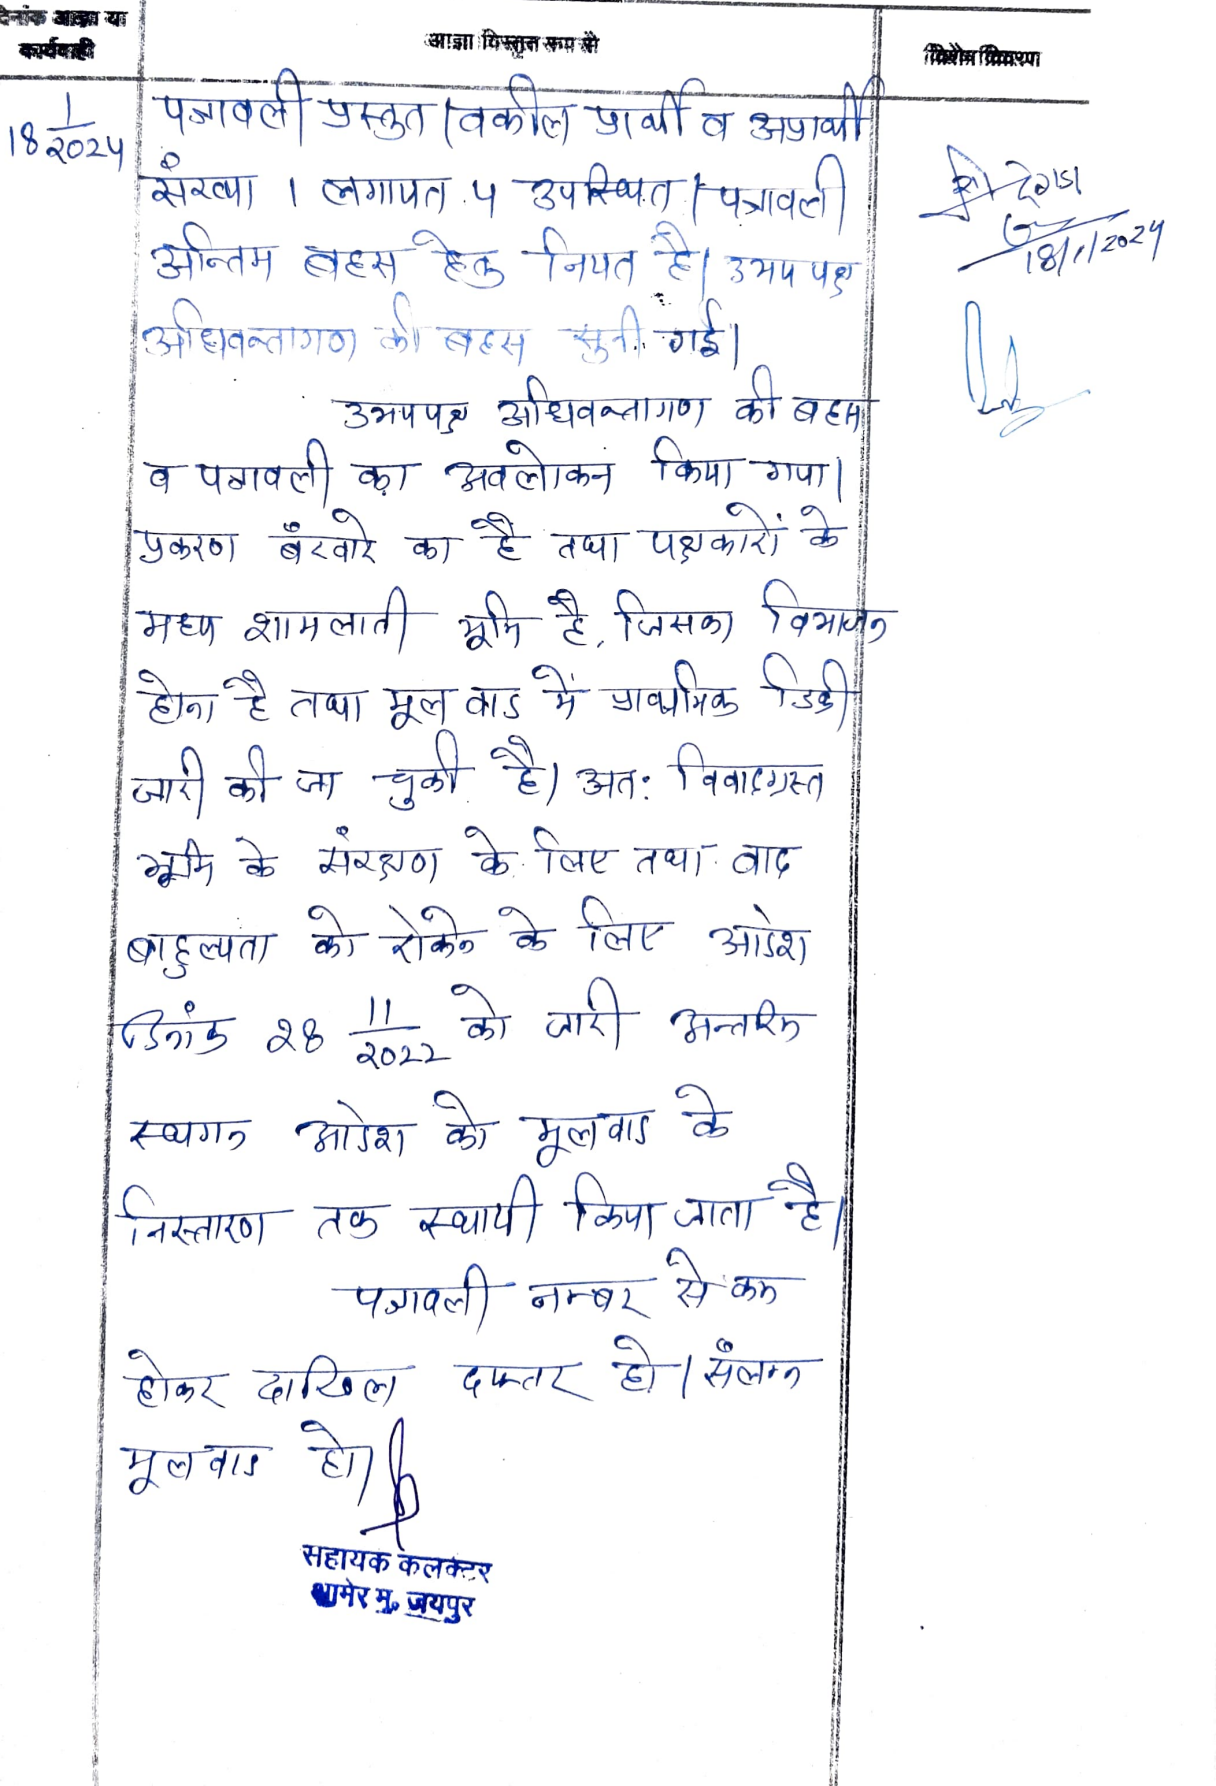 दिनांक आज्ञा या
कार्यवाही
आज्ञा विस्तृत रूप से
विशेष विवरण
18 1/2024
पत्रावली प्रस्तुत । वकील प्रार्थी व अप्रार्थी
संख्या 1 लगायत 4 उपस्थित । पत्रावली
अन्तिम बहस हेतु नियत है। उभय पक्ष
अधिवक्तागण की बहस सुनी गई।
उभयपक्ष अधिवक्तागण की बहस
व पत्रावली का अवलोकन किया गया।
प्रकरण बँटवारे का है तथा पक्षकारों के
मध्य शामलाती भूमि है, जिसका विभाजन
होना है तथा मूल वाद में प्राथमिक डिक्री
जारी की जा चुकी है। अतः विवादग्रस्त
भूमि के संरक्षण के लिए तथा वाद
बाहुल्यता को रोकने के लिए आदेश
दिनांक 28 11/2022 को जारी अन्तरिम
स्थगन आदेश को मूलवाद के
निस्तारण तक स्थायी किया जाता है।
पत्रावली नम्बर से कम
होकर दाखिल दफ्तर हो। संलग्न
मूल वाद हो।
18/1/2024
सहायक कलक्टर
आमेर मु. जयपुर